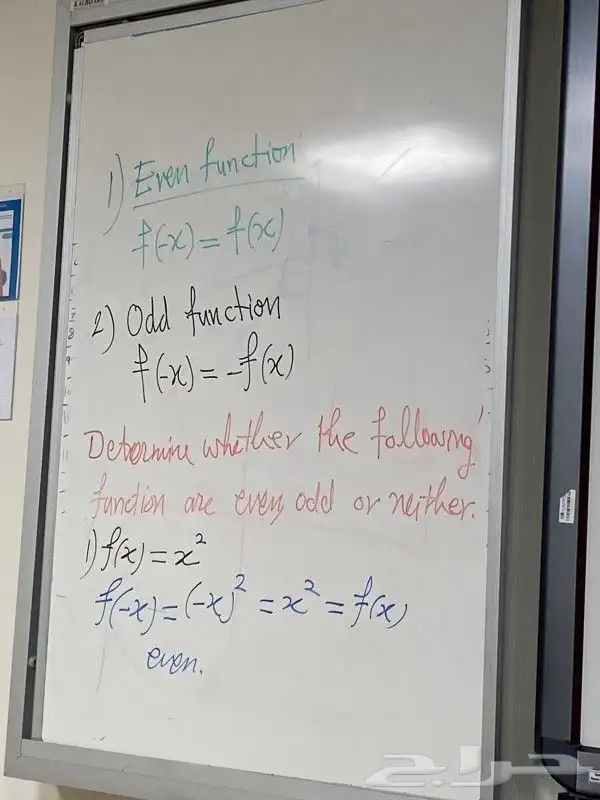 1) Even function
f(-x) = f(x)
2) Odd function
f(-x) = -f(x)
Determine whether the following
function are even, odd or neither.
1) f(x) = x²
f(-x) = (-x)² = x² = f(x)
even.
حراج